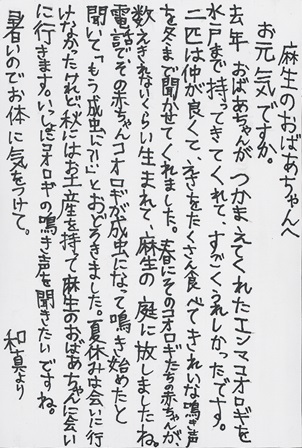 麻生のおばあちゃんへ
お元気ですか。
去年 おばあちゃんが つかまえてくれたエンマコオロギを
水戸まで持ってきてくれて、すごくうれしかったです。
二匹は仲が良くて、えさをたくさん食べてきれいな鳴き声
を冬まで聞かせてくれました。春にそのコオロギたちの赤ちゃんが
数えきれないくらい生まれて、麻生の庭に放しましたね。
電話で、その赤ちゃんコオロギが成虫になって鳴き始めたと
聞いて「もう成虫に?!」とおどろきました。夏休みは会いに行
けなかったけれど、秋にはお土産を持って麻生のおばあちゃんに会い
に行きます。いっしょにコオロギの鳴き声を聞きたいですね。
暑いのでお体に気をつけて。
和真より